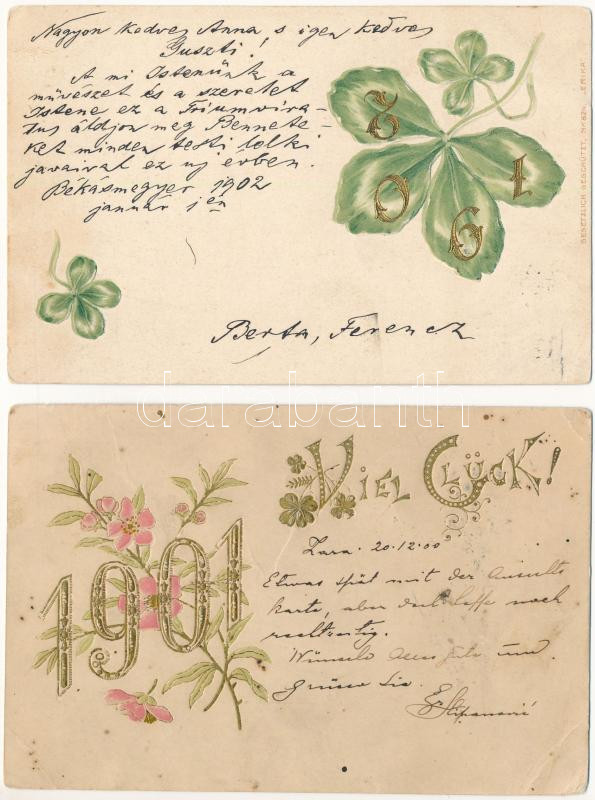 Nagyon kedves Anna s igen kedves
Guszti!
A mi Istenünk a
művészet és a szeretet
Istene ez a Triumvira-
tus áldjon meg Bennete-
ket minden testi lelki
javaival ez uj évben.
Békásmegyer 1902
január 1én
2 0 6 1
GESETZLICH GESCHÜTZT. "ERIKA"
Berta, Ferencz
darabanth
VIEL GLÜCK!
1901
Zara. 20.12.00
Etwas spät mit der
karte, aber noch
rechtzeitig.
Wünsche alles gute und
grüsse Sie
Stipanović